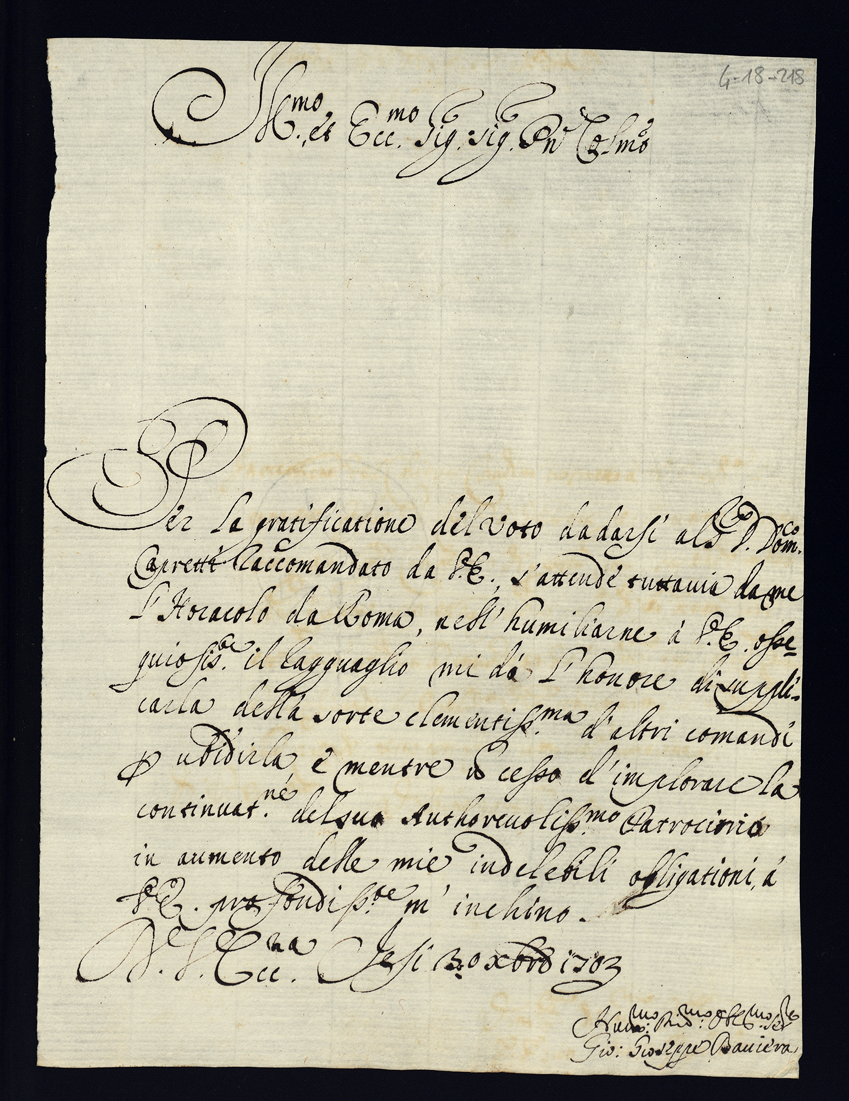 4-18-218
Ill.mo et Ecc.mo Sig: Sig. Pn͞e Col.mo
Per la gratificatione del voto da darsi al S. D. Dom.co
Capretti raccomandato da V.E., s'attende tuttavia da me
l'Horacolo da Roma, nell'humiliarne à V.E. osse=
quiosis.e il ragguaglio mi dà l'honore di suppli=
carla della sorte clementiss.ma d'altri comandi
p ubidirla e mentre cesso d'implorare la
continuat.ne del suo Authorevoliss.mo Patrocinio
in aumento delle mie indelebili obligationi, à
V.E. profondiss.te m'inchino.
D. V. Ecc.za Jesi 30 Xbre 1703
Hum.mo
Gio: Gioseppe Baviera